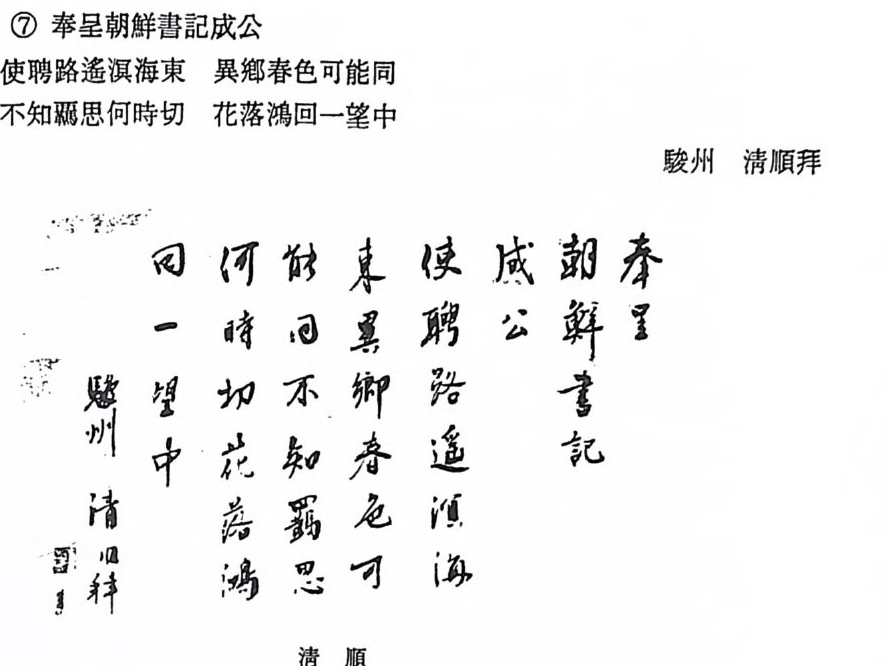 ⑦ 奉呈朝鮮書記成公
使聘路遙溟海東　異鄉春色可能同
不知羈思何時切　花落鴻回一望中
駿州　淸順拜
奉呈
朝鮮書記
成公
使聘路遙溟海
東異鄉春色可
能同不知羈思
何時切花落鴻
回一望中
駿州 清順拜
淸　順